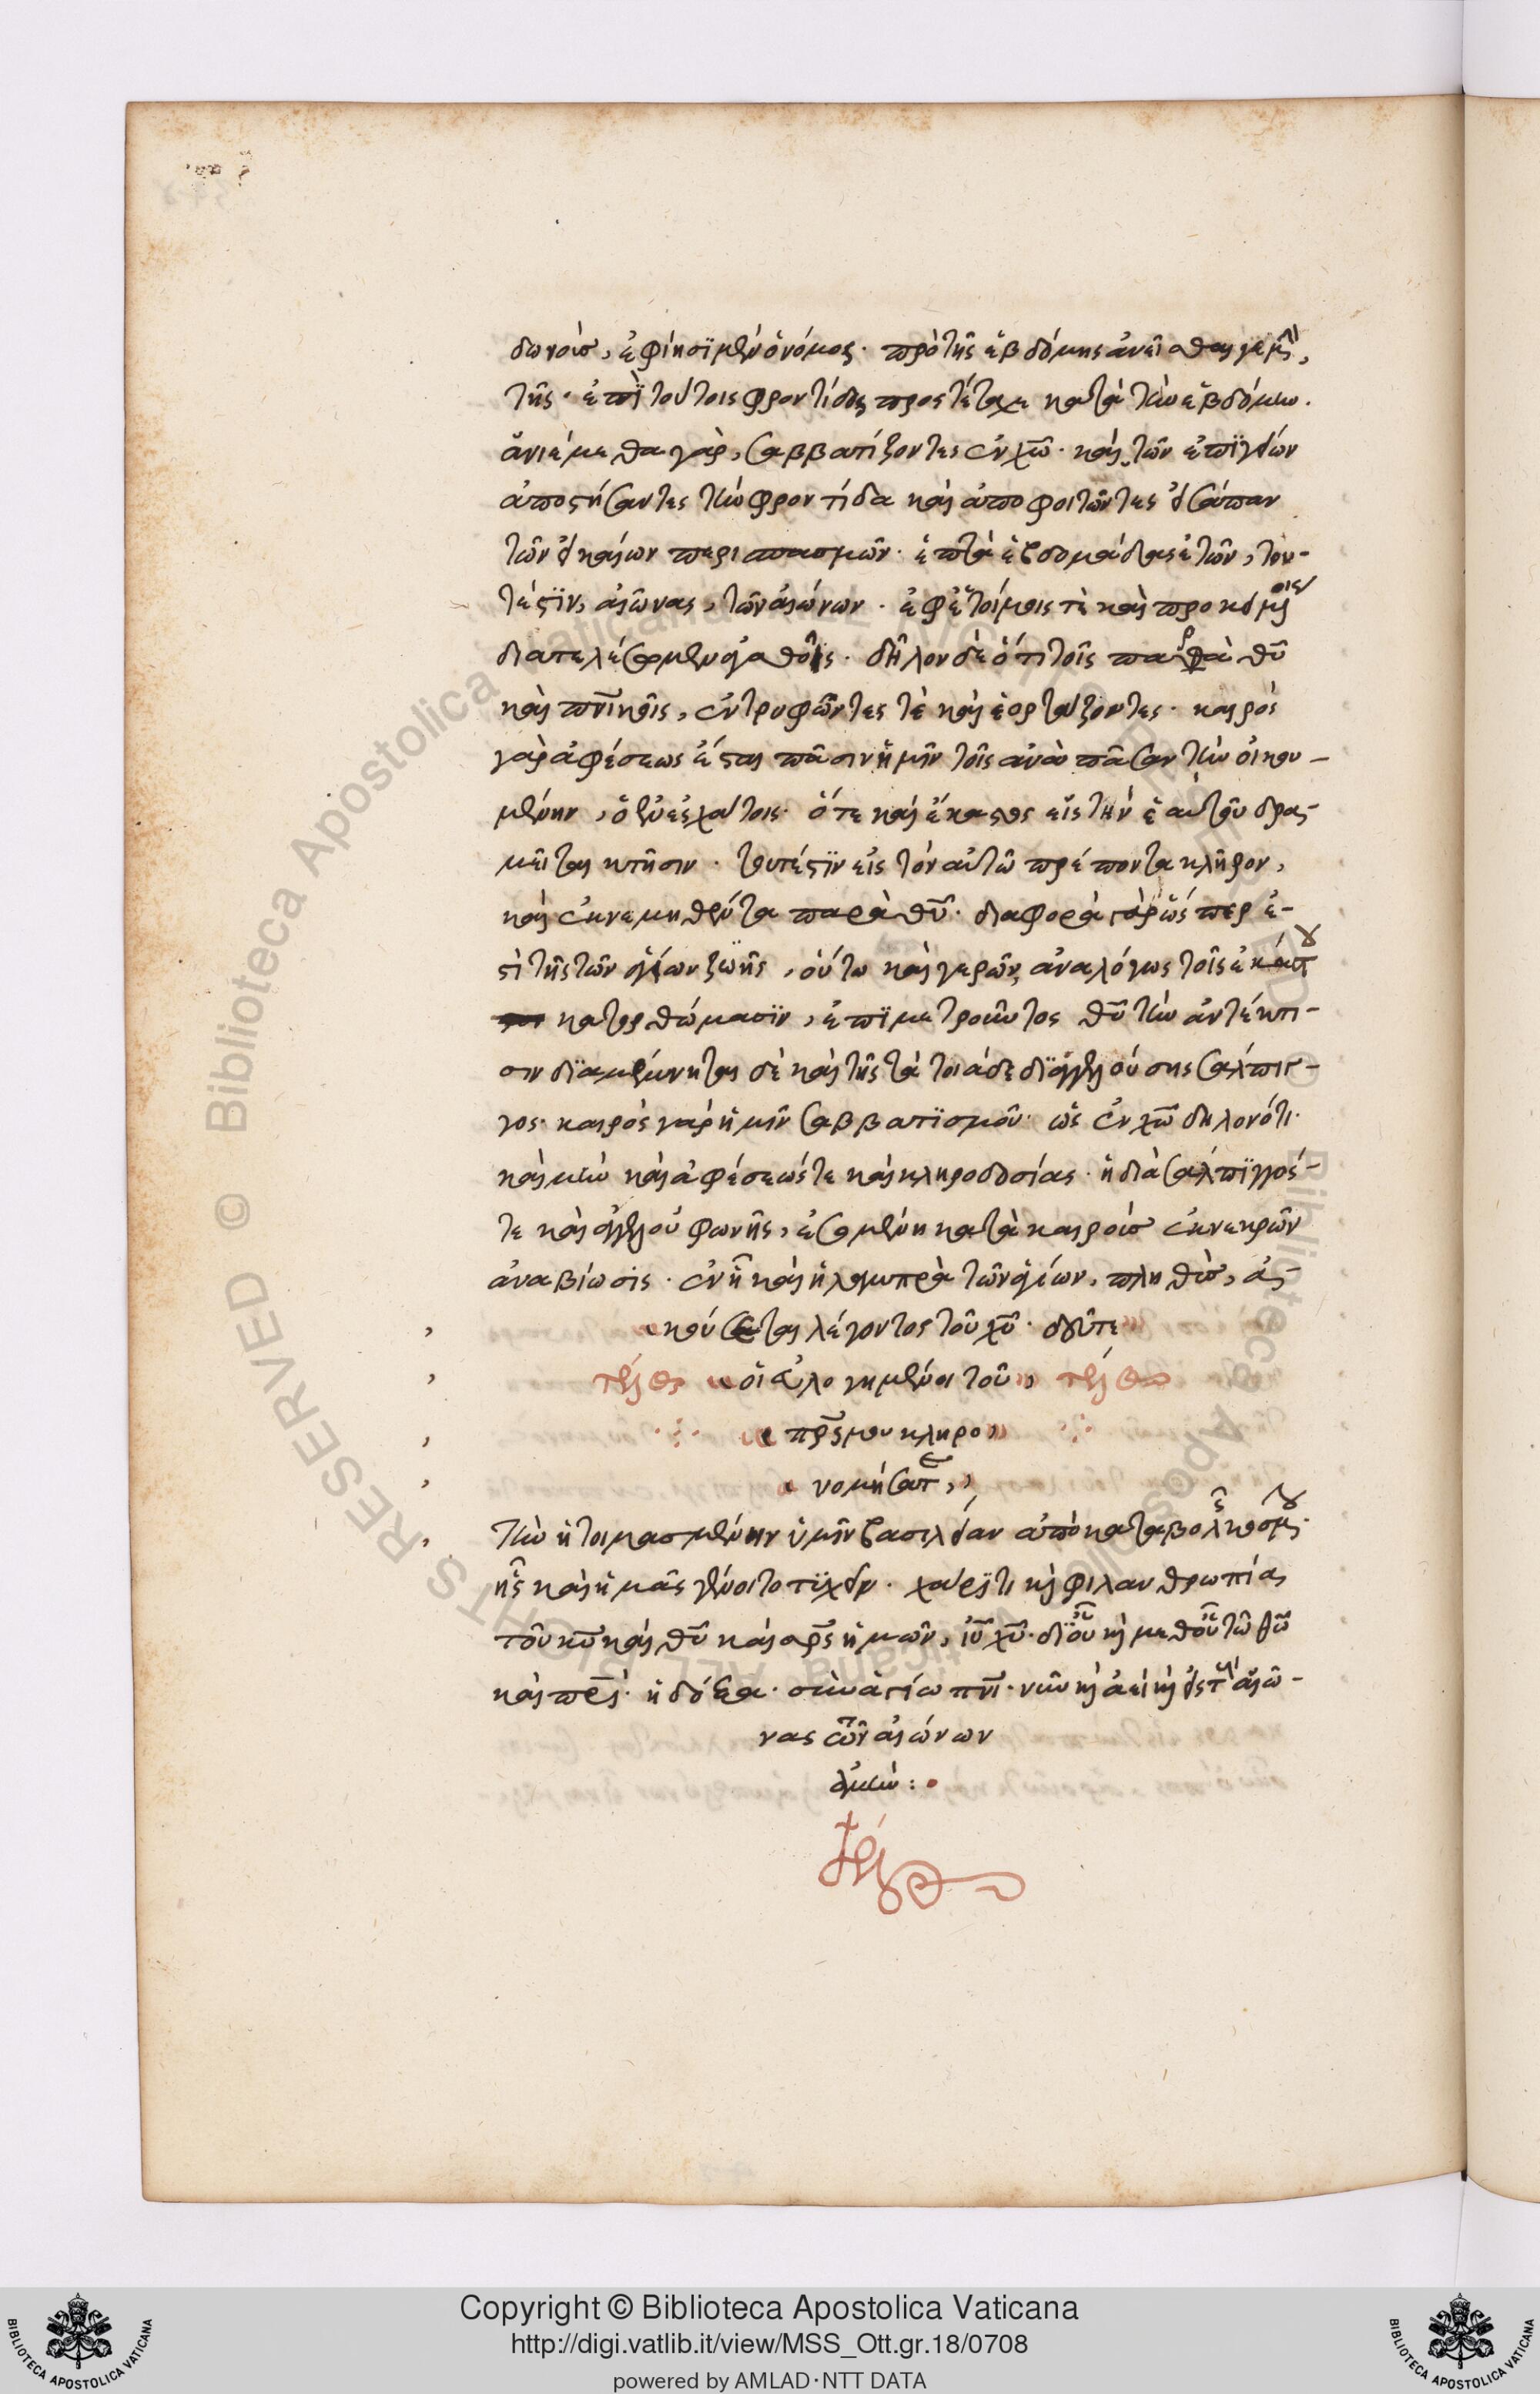 δωνοὺς, ἐφίησϊ μὲν ὁ νόμος. πρὸ τῆς ἑβδόμης ἀνεῖσθαι γε μὴν,
τῆς. ἐπὶ τούτοις φροντίδος προστέταχε κατὰ τὴν ἑβδόμην.
ἀνιέμεθα γὰρ, σαββατίζοντες ἐν χῶ. καὶ τῶν ἐπϊγείων
ἀποστήσαντες τὴν φροντίδα καὶ ἀποφοιτῶντες εἰσάπαν
τῶν εἰκαίων περισπασμῶν. ἑπτὰ ἑβδομάδας ἐτῶν, του-
τέστϊν, αἰῶνας, τῶν αἰώνων. ἐφ' ἑτοίμοις τὲ καὶ προκειμένοις
διατελέσομεν ἀγαθοῖς. δῆλον δὲ ὅτι τοῖς παρὰ θῦ
καὶ πνϊκοῖς, ἐντρυφῶντες τὲ καὶ ἑορτάζοντες. καιρὸς
γὰρ ἀφέσεως ἔσται πᾶσιν ἡμῖν τοῖς ἀνὰ πᾶσαν τὴν οἰκου-
μένην, ὁ ἐν ἐσχάτοις. ὅτε καὶ ἕκαστος εἰς τὴν ἑαυτοῦ δρα-
μεῖται κτῆσιν. τουτέστϊν εἰς τὸν αὐτῶ πρέποντα κλῆρον,
καὶ ἐκνεμηθέντα παρὰ θῦ. διαφορὰ γὰρ ὥσπερ ἐ-
στὶ τῆς τῶν ἁγίων ζωῆς, οὕτω καὶ γερῶν, ἀναλόγως τοῖς ἑκάστου
κατορθώμασϊν, ἐπϊμετροῦντος θῦ τὴν ἀντέκτι-
σιν δϊαμέμνηται δὲ καὶ τῆς τὰ τοιάδε δϊαγγελούσης σάλπιγ-
γος. καιρὸς γὰρ ἡμῖν σαββατϊσμοῦ. ὡς ἐν χῶ δηλονότι.
καὶ μὴν καὶ ἀφέσεώς τε καὶ κληροδοσίας. ἡ διὰ σάλπϊγγός-
τε καὶ ἀγγέλου φωνῆς, ἐσομένη κατὰ καιροὺς ἐκ νεκρῶν
ἀναβίωσϊς. ἐν ἧ καὶ ἡ λαμπρὰ τῶν ἁγίων, πληθὺς, ἀ-
κούσεται λέγοντος τοῦ χῦ. δεῦτε
τέλος οἱ εὐλογημένοι τοῦ τέλος
πρς μου κληρο
νομήσατε,
τὴν ἡτοιμασμένην ὑμῖν βασιλείαν ἀπὸ καταβολῆς κόσμου.
ἧς καὶ ἡμᾶς γένοιτο τϋχεῖν. χάρϊτι καὶ φιλανθρωπίας
τοῦ κῦ καὶ θῦ καὶ σρς ἡμῶν, ἰῦ χῦ. δϊ' οὗ καὶ μεθ' οὗ τῶ θῶ
καὶ πρὶ. ἡ δόξα. σὺν ἁγίω πνϊ. νῦν καὶ ἀεὶ καὶ εἰς τοὺς αἰῶ-
νας τῶν αἰώνων
ἀμήν:
τέλος
Copyright © Biblioteca Apostolica Vaticana
http://digi.vatlib.it/view/MSS_Ott.gr.18/0708
powered by AMLAD·NTT DATA